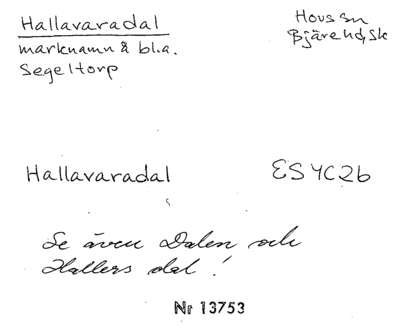 Hallavaradal
marknamn å bl.a.
Segeltorp
Hovs sn
Bjäre hd, Sk
Hallavaradal
ES 4C2b
Se även Dalen och
Hallers dal!
Nr 13753